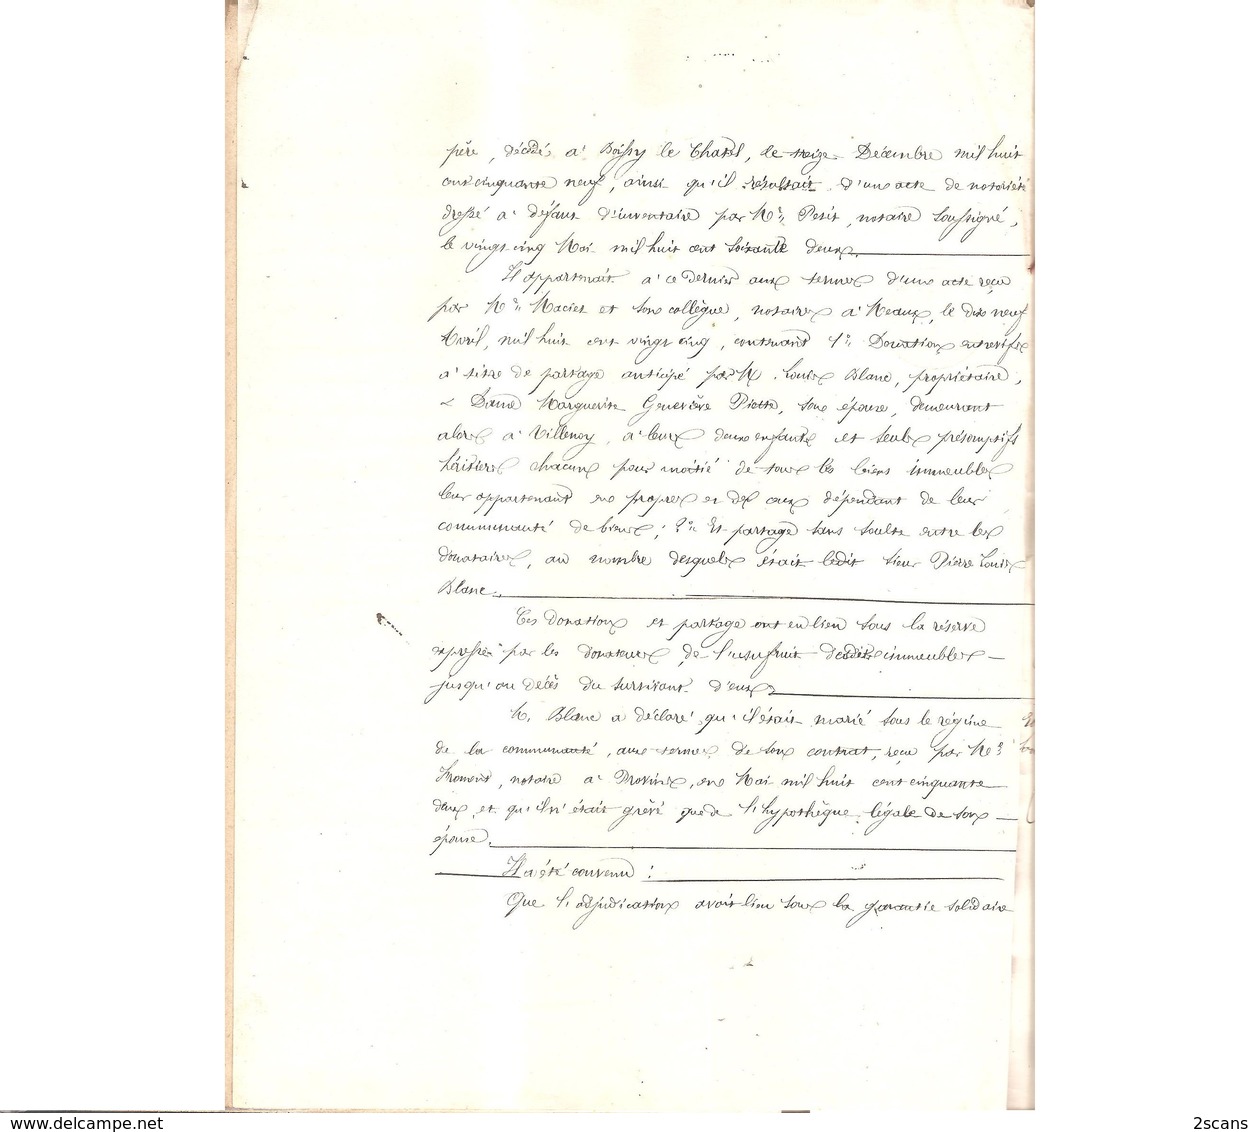 père, décédé à Boissy le Chatel, le treize Décembre mil huit
cent cinquante neuf, ainsi qu'il résultait d'une acte de notoriété
dressé à défaut d'inventaire par Me Petit, notaire soussigné,
le vingt cinq Mai mil huit cent soixante deux.
Il appartenait à ce dernier aux termes d'une acte reçu
par Me Maciet et son collègue, notaires à Meaux, le dix neuf
Avril, mil huit cent vingt cinq, contenant 1° Donation entrevifs
à titre de partage anticipé par M. Louis Blanc, propriétaire,
& Dame Marguerite Geneviève Piette, son épouse, demeurant
alors à Villenoy, à leurs deux enfants et seuls présomptifs
héritiers chacun pour moitié de tous les biens immeubles
leur appartenant en propres et des ceux dépendant de leur
communauté de biens; 2° Et partage sans soulte entre les
donataires, au nombre desquels était ledit sieur Pierre Louis
Blanc.
Ces donation et partage ont eu lieu sous la réserve
expresse par les donateurs de l'usufruit desdits immeubles
jusqu'au décès du survivant d'eux.
M. Blanc a déclaré qu'il était marié sous le régime
de la communauté, aux termes de son contrat, reçu par Me
notaire à Provins, en Mai mil huit cent cinquante
deux, et qu'il n'était grévé que de l'hypothèque légale de son
épouse.
Il a été convenu :
Que l'adjudication avait lieu sous la garantie solidaire
www.delcampe.net
2scans